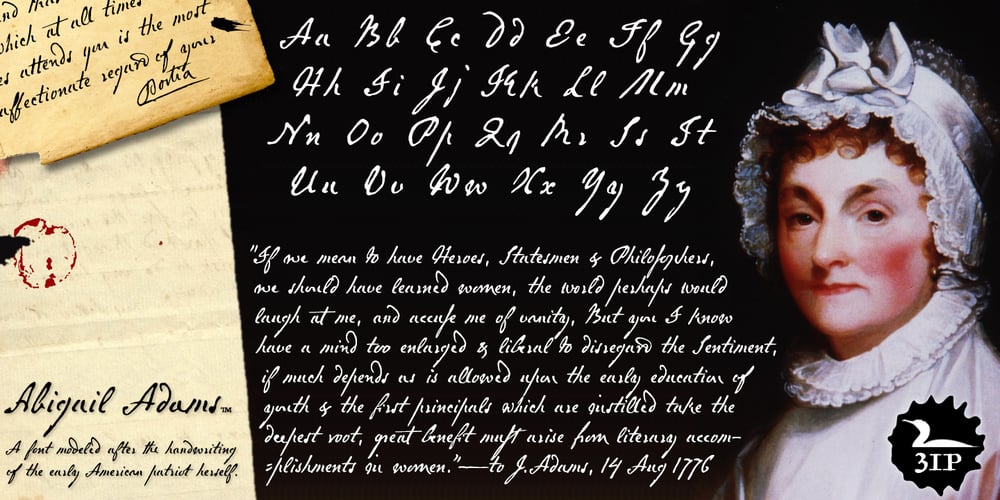 and than
which at all times
es attends you is the most
affectionate regard of your
Portia
Abigail Adams™
A font modeled after the handwriting
of the early American patriot herself.
Aa Bb Cc Dd Ee Ff Gg
Hh Ii Jj Kk Ll Mm
Nn Oo Pp Qq Rr Ss Tt
Uu Vv Ww Xx Yy Zz
"If we mean to have Heroes, Statesmen & Philosophers,
we should have learned women, the world perhaps would
laugh at me, and accuſe me of vanity, But you I know
have a mind too enlarged & liberal to disregard the Sentiment,
if much depends as is allowed upon the early education of
youth & the first principals which are instilled take the
deepest root, great benefit muſt arise from literary accom-
=plishments in women."—to J. Adams, 14 Aug 1776
3IP